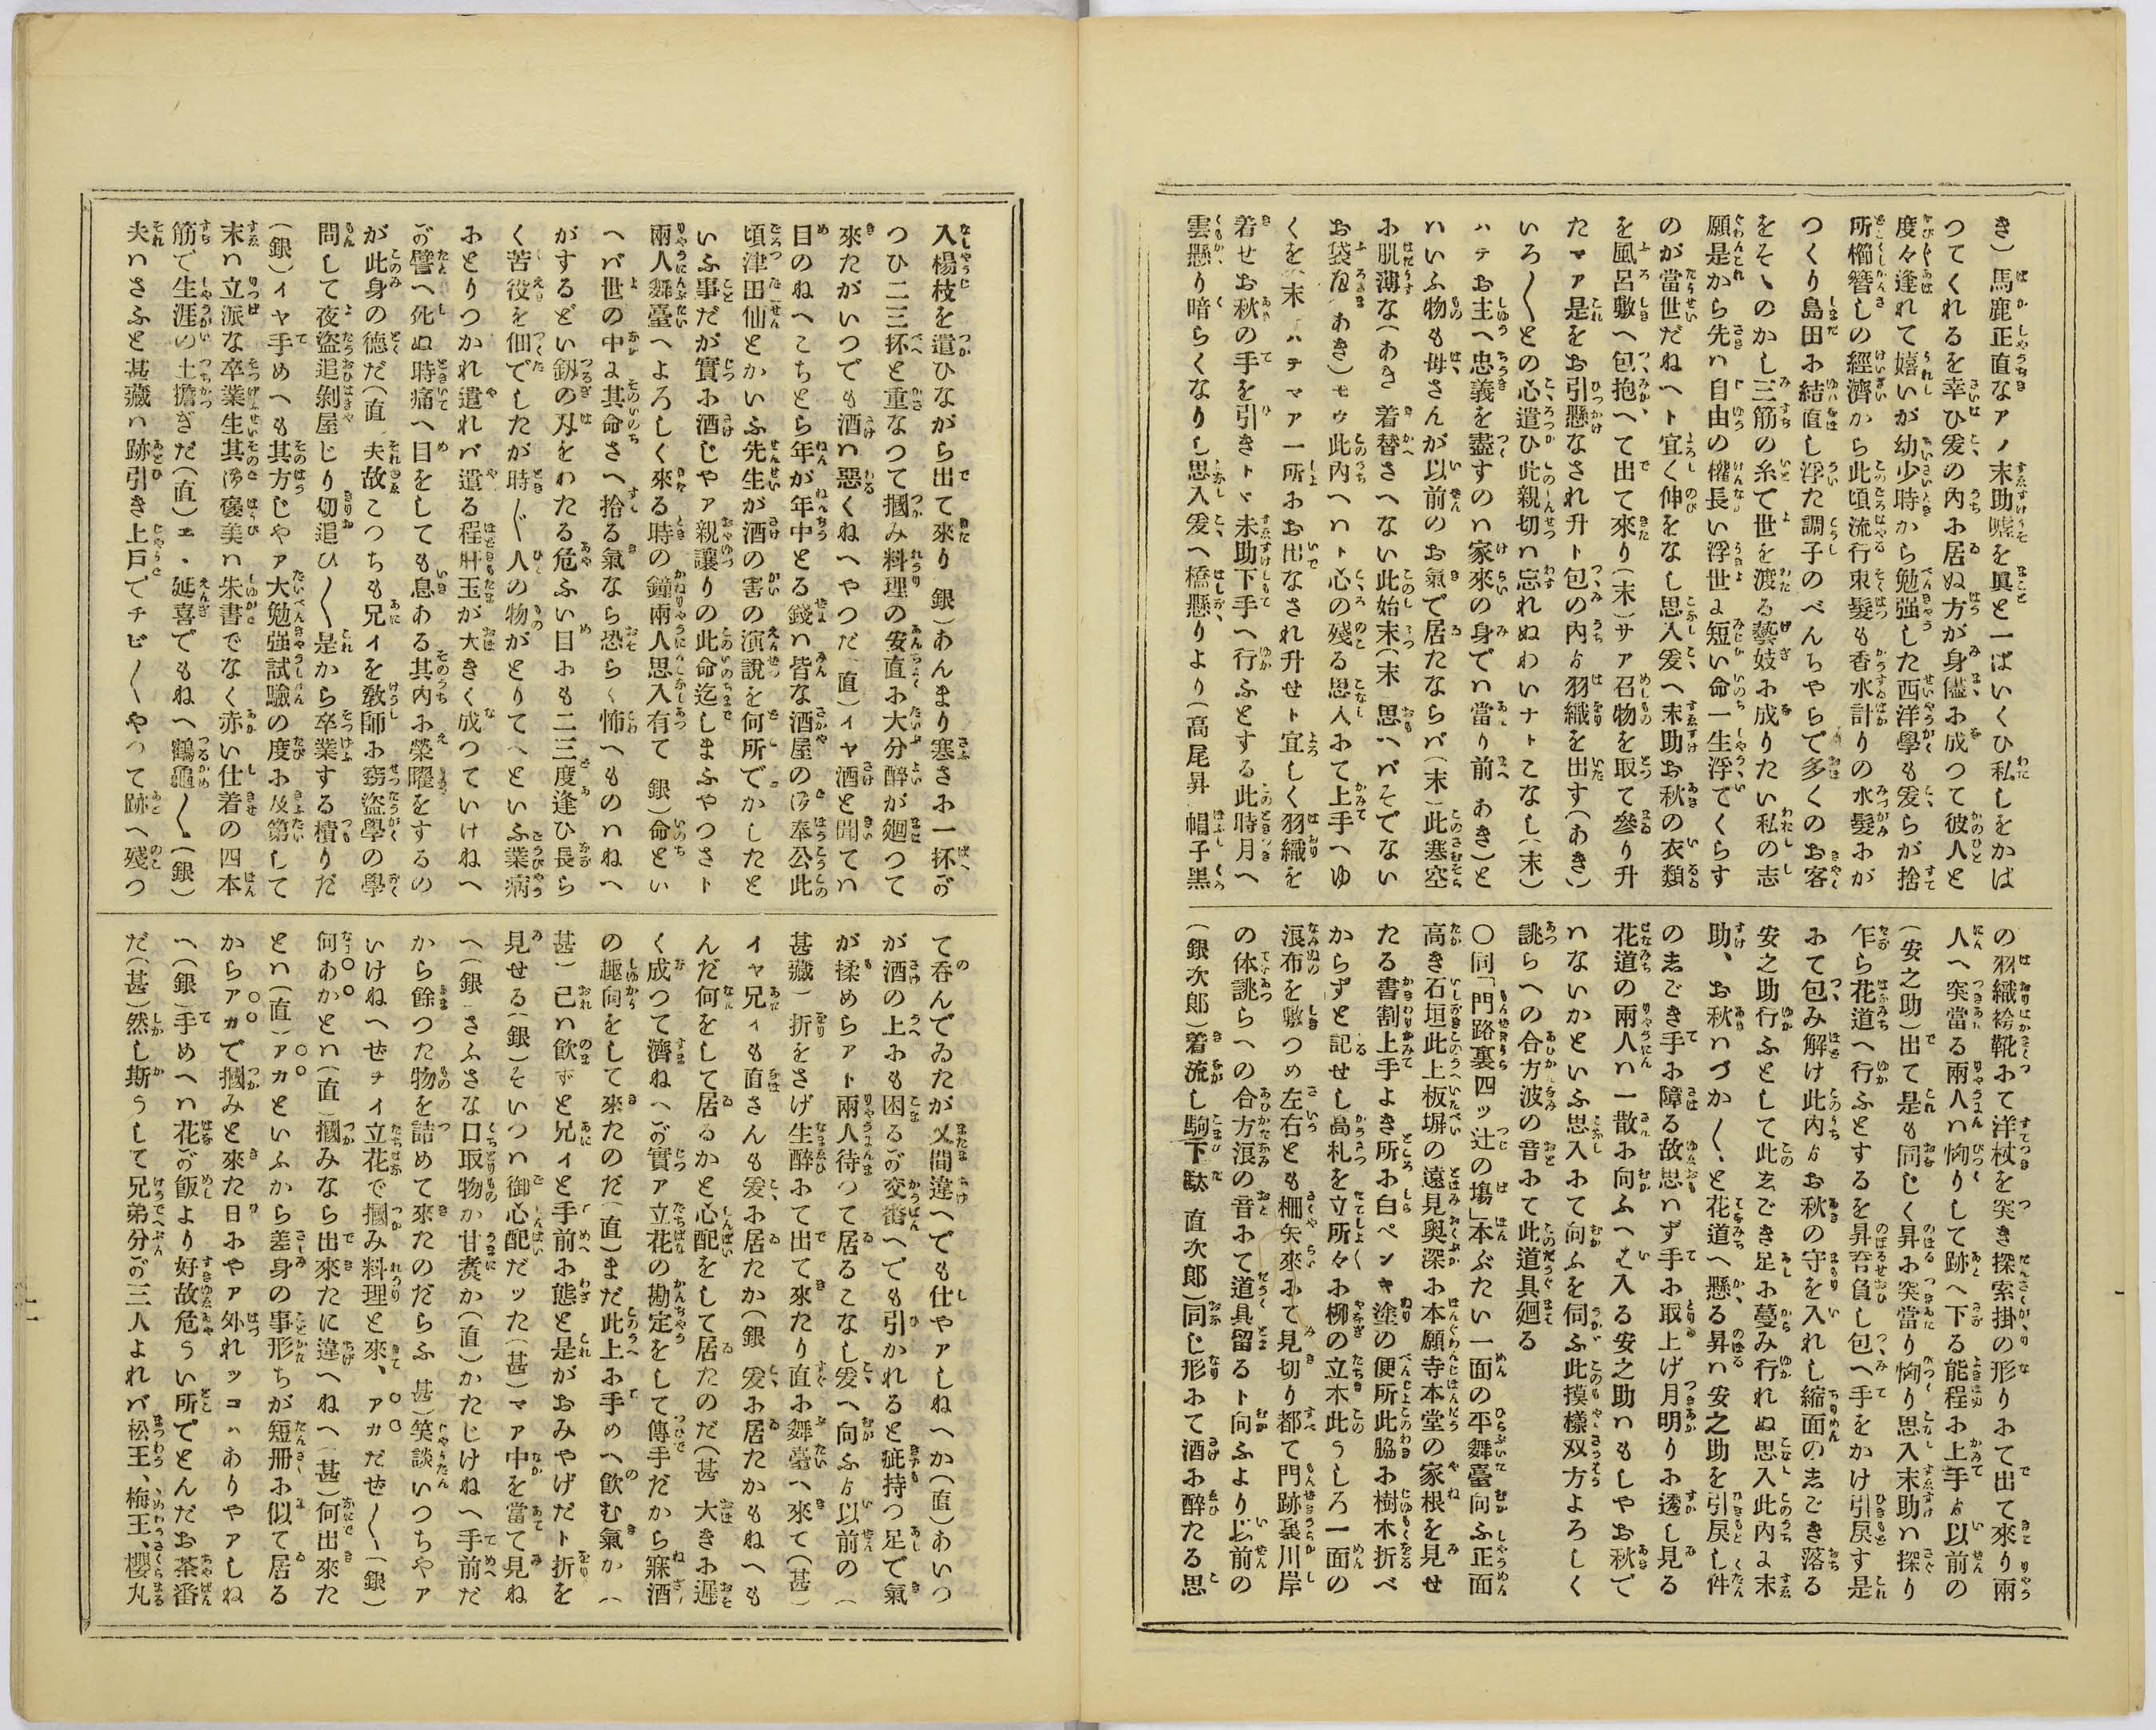 き）馬鹿正直なアノ末助嘘を眞と一ぱいくひ私しをかば
つてくれるを幸ひ爰の內お居ぬ方が身儘お成つて彼人と
度々逢れて嬉いが幼少時から勉强した西洋學も爰らが捨
所櫛簪しの經濟から此頃流行束髮も香水計りの水髮おが
つくり島田お結直し浮た調子のべんちやらで多くのお客
をそゝのかし三筋の糸で世を渡る藝妓お成りたい私の志
願是から先ハ自由の權長い浮世ゟ短い命一生浮てくらす
のが當世だねへト宜く伸をなし思入爰へ末助お秋の衣類
を風呂敷へ包抱へて出て來り（末）サア召物を取て參り升
たマア是をお引懸なされ升ト包の內ゟ羽織を出す（あき）
いろ〱との心遣ひ此親切ハ忘れぬわいナトこなし（末）
ハテお主へ忠義を盡すのハ家來の身でハ當り前（あき）と
ハいふ物も母さんが以前のお氣で居たならバ（末）此寒空
お肌薄な（あき）着替さへない此始末（末）思ヘバそでない
お袋（あき）モウ此內へハト心の殘る思入おて上手へゆ
くを（末）ハテマア一所おお出なされ升せト宜しく羽織を
着せお秋の手を引きトヾ末助下手へ行ふとする此時月へ
雲懸り暗らくなりし思入爰へ橋懸りより（高尾昇）帽子黑
の羽織袴靴おて洋杖を突き探索掛の形りおて出て來り兩
人へ突當る兩人ハ恟りして跡へ下る能程お上手ゟ以前の
（安之助）出て是も同じく昇お突當り恟り思入末助ハ探り
乍ら花道へ行ふとするを昇脊負し包へ手をかけ引戾す是
おて包み解け此內ゟお秋の守を入れし縮面の志ごき落る
安之助行ふとして此志ごき足お蔓み行れぬ思入此內ゟ末
助、お秋ハづか〱と花道へ懸る昇ハ安之助を引戾し件
の志ごき手お障る故思ハず手お取上げ月明りお透し見る
花道の兩人ハ一散お向ふへは入る安之助ハもしやお秋で
ハないかといふ思入おて向ふを伺ふ此摸樣双方よろしく
誂らへの合方波の音おて此道具廻る
〇同「門路裏四ッ辻の塲」本ぶたい一面の平舞臺向ふ正面
高き石垣此上板塀の遠見奧深お本願寺本堂の家根を見せ
たる書割上手よき所お白ペンキ塗の便所此脇お樹木折べ
からずと記せし高札を立所々お柳の立木此うしろ一面の
浪布を敷つめ左右とも柵矢來おて見切り都て門跡裏川岸
の体誂らへの合方浪の音おて道具留るト向ふより以前の
（銀次郎）着流し駒下駄（直次郎）同じ形おて酒お醉たる思
入楊枝を遣ひながら出て來り（銀）あんまり寒さお一抔が
つひ二三抔と重なつて摑み料理の安直お大分醉が廻つて
來たがいつでも酒ハ惡くねへやつだ（直）イヤ酒と聞てハ
目のねへこちとら年が年中とる錢ハ皆な酒屋の御奉公此
頃津田仙とかいふ先生が酒の害の演說を何所でかしたと
いふ事だが實お酒じやア親讓りの此命迄しまふやつさト
兩人舞臺へよろしく來る時の鐘兩人思入有て（銀）命とい
へバ世の中ゟ其命さへ拾る氣なら恐らく怖へものハねへ
がするどい釼の刄をわたる危ふい目おも二三度逢ひ長ら
く苦役を佃でしたが時〲人の物がとりてへといふ業病
おとりつかれ遣れバ遣る程肝玉が大きく成つていけねへ
が譬へ死ぬ時痛へ目をしても息ある其內お榮曜をするの
が此身の德だ（直）夫故こつちも兄イを敎師お窃盜學の學
問して夜盜追剝屋じり切追ひ〱是から卒業する積りだ
（銀）イヤ手めへも其方じやア大勉强試驗の度お及第して
末ハ立派な卒業生其御褒美ハ朱書でなく赤い仕着の四本
筋で生涯の土擔ぎだ（直）ヱヽ延喜でもねへ鶴龜〱（銀）
夫ハさふと甚藏ハ跡引き上戸でチビ〱やつて跡へ殘つ
て呑んでゐたが又間違へでも仕やアしねへか（直）あいつ
が酒の上おも困るが交番へでも引かれると疵持つ足で氣
が揉めらアト兩人待つて居るこなし爰へ向ふゟ以前の（
甚藏）折をさげ生醉おて出て來たり直お舞臺へ來て（甚）
イヤ兄イも直さんも爰お居たか（銀）爰お居たかもねへも
んだ何をして居るかと心配をして居たのだ（甚）大きお遲
く成つて濟ねへが實ア立花の勘定をして傳手だから寐酒
の趣向をして來たのだ（直）まだ此上お手めへ飮む氣か（
甚）己ハ飮ずと兄イと手前お態と是がおみやげだト折を
見せる（銀）そいつハ御心配だッた（甚）マア中を當て見ね
へ（銀）さふさな口取物か甘煮か（直）かたじけねへ手前だ
から餘つた物を詰めて來たのだらふ（甚）笑談いつちやア
いけねへぜチイ立花で摑み料理と來、アカだぜ〱（銀）
何あかとハ（直）摑みなら出來たに違へねへ（甚）何出來た
とハ（直）アカといふから差身の事形ちが短冊お似て居る
からアカで摑みと來た日おやア外れッコハありやアしね
へ（銀）手めへハ花が飯より好故危うい所でとんだお茶番
だ（甚）然し斯うして兄弟分が三人よれバ松王、梅王、櫻丸